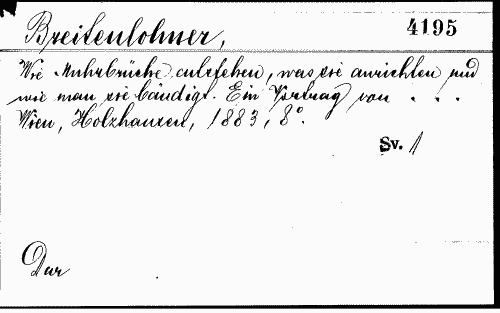 Breitenlohner,
4195
Wie Muhrbrüche entstehen, was sie anrichten und
wie man sie bändigt. Ein Vortrag von . . .
Wien, Holzhausen, 1883, 8°.
Sv. 1
Dar